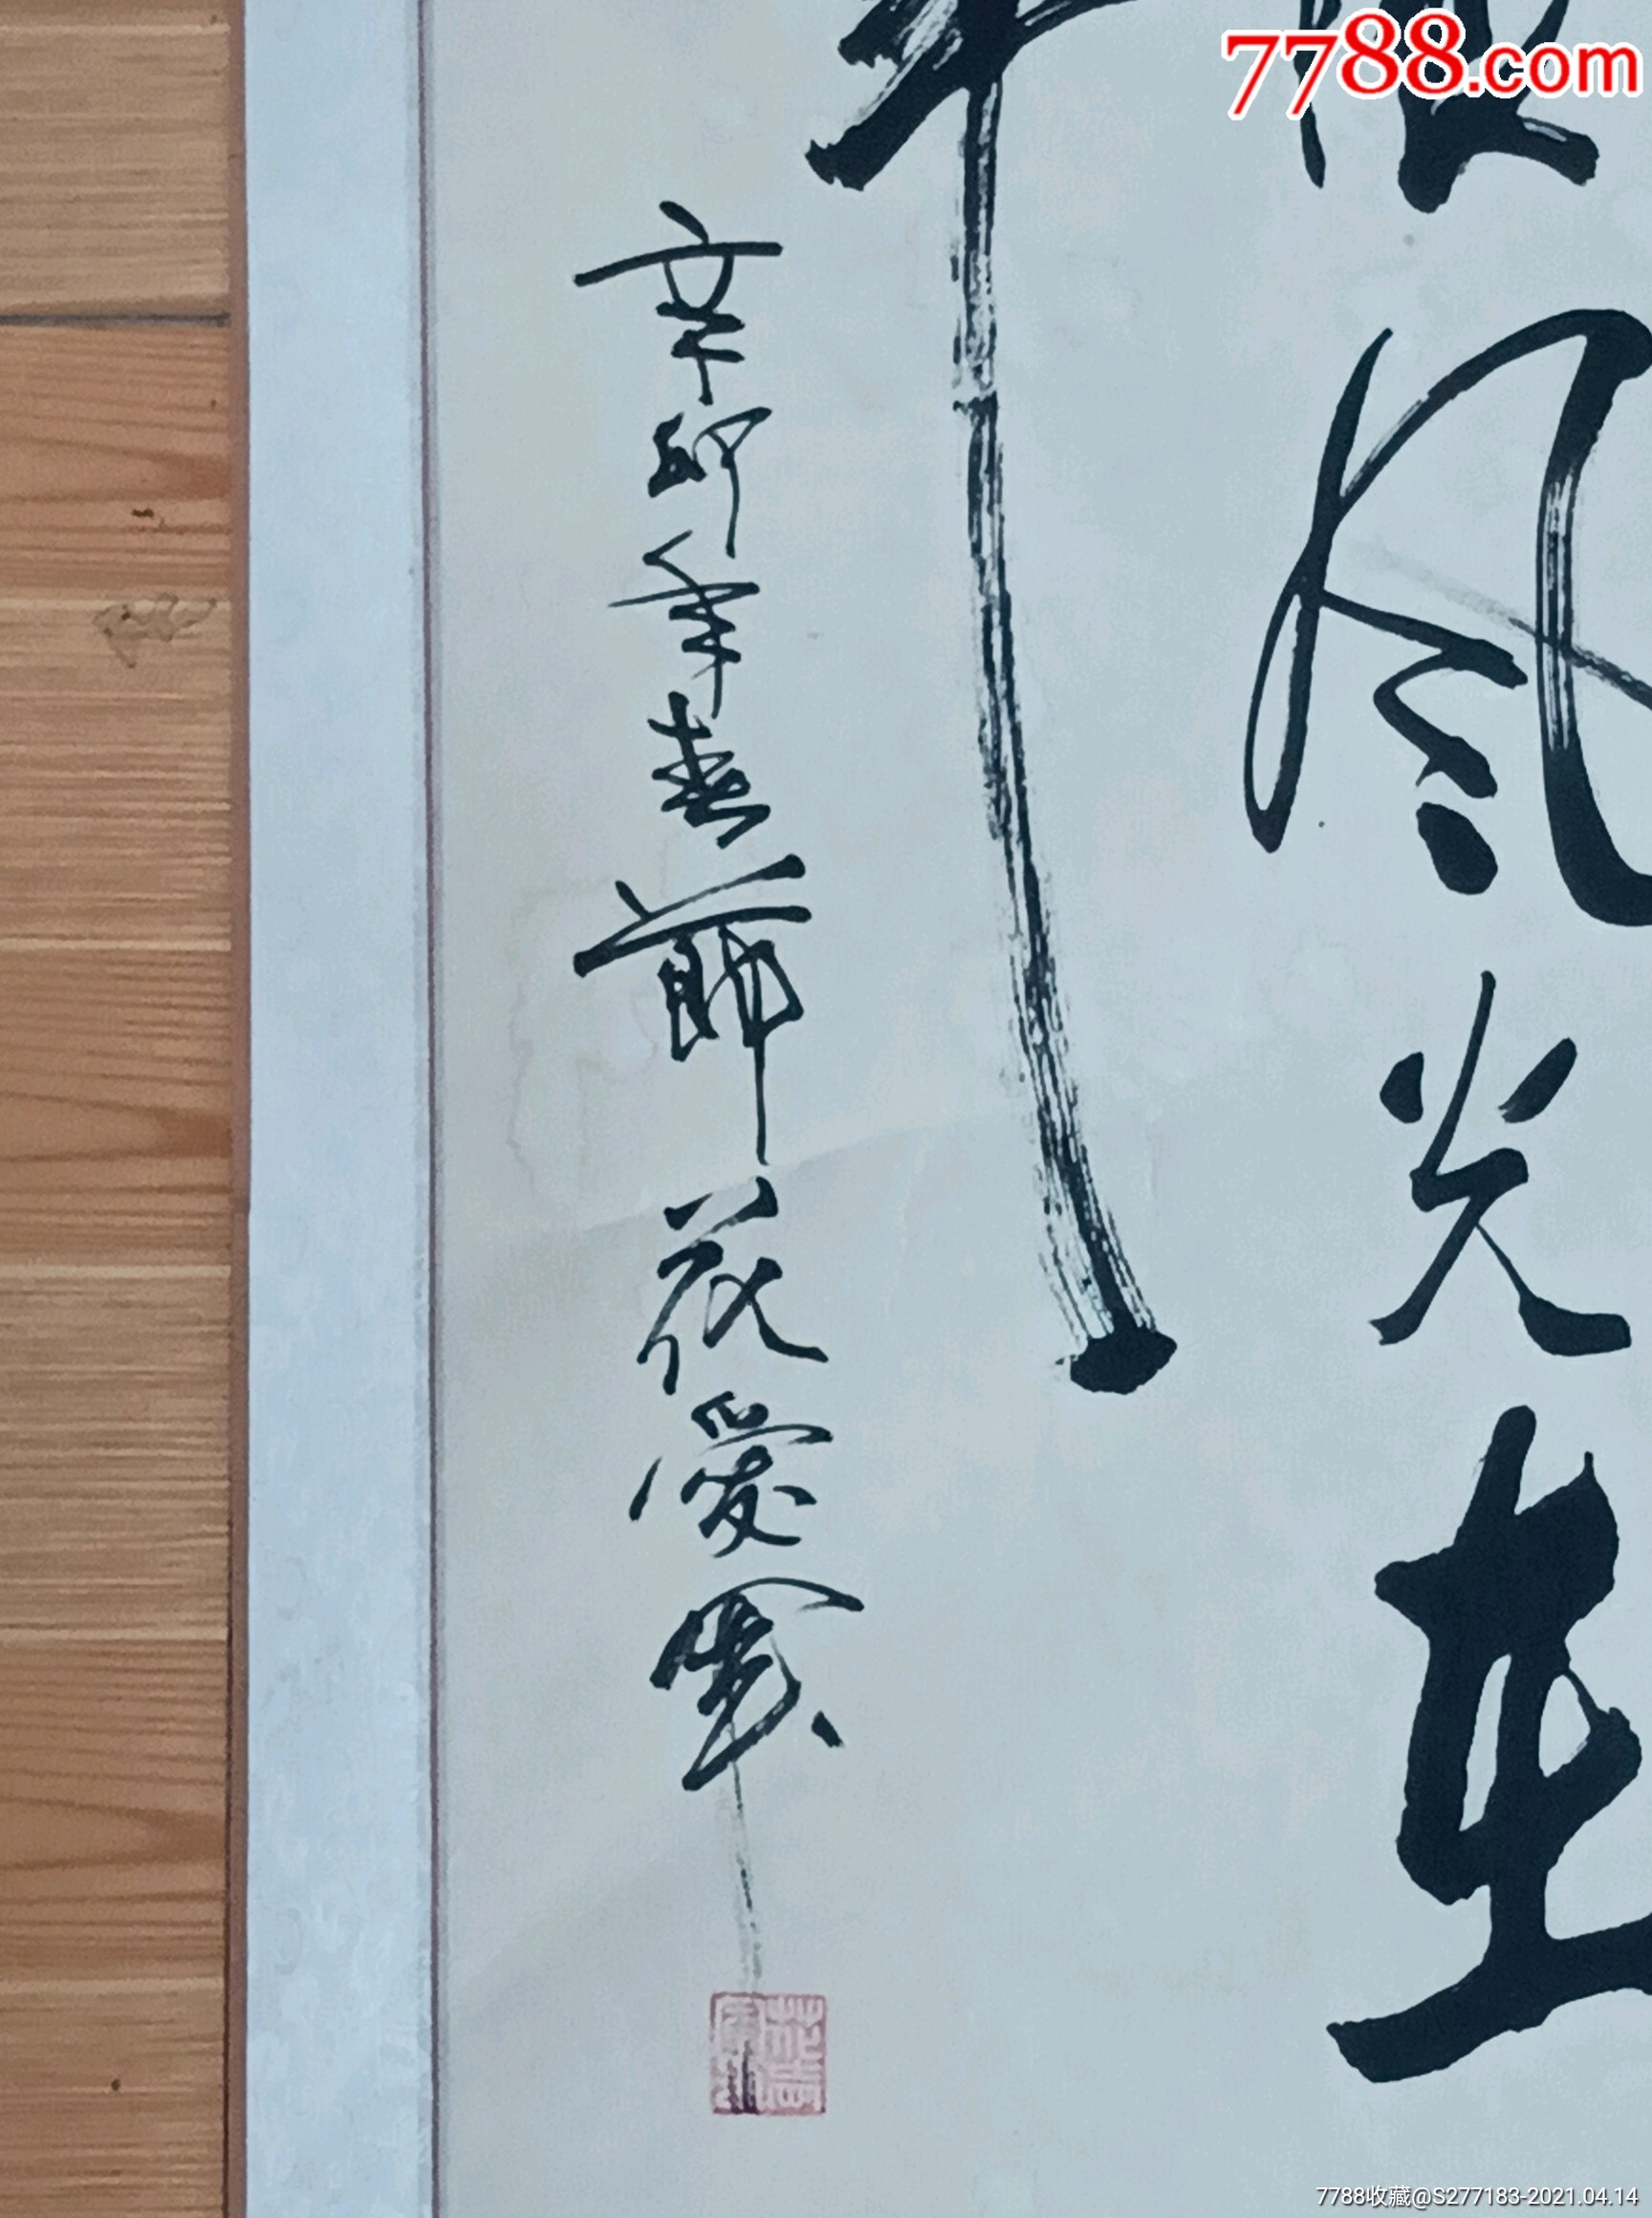 7788.com
风光在
辛卯年春節花愛
7788收藏@S277183-2021.04.14